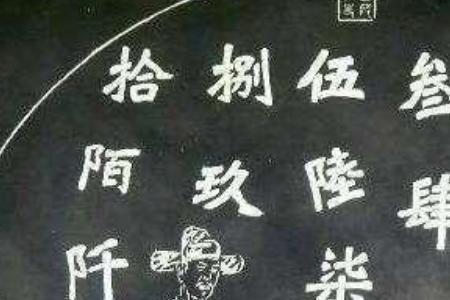 叁肆
伍陸柒
捌玖
拾陌阡